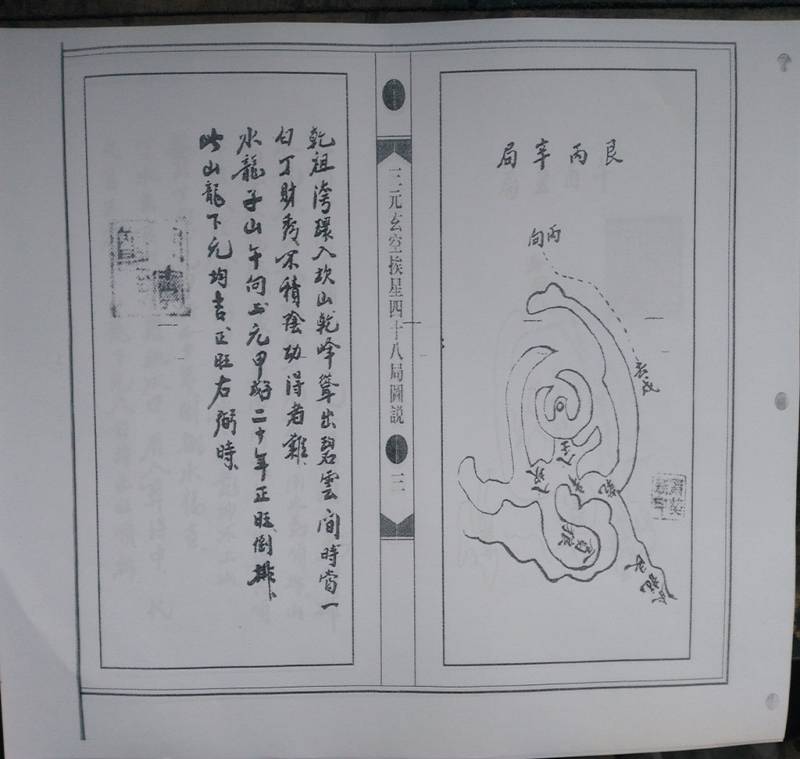 艮丙辛局
丙向
三元玄空挨星四十八局圖説
三
乾祖灣環入坎山乾峰聳出碧雲間時當一
白丁財秀不積陰功得者難
水龍子山午向上元甲二十年正旺倒排
此山龍下元均吉正旺右弼時